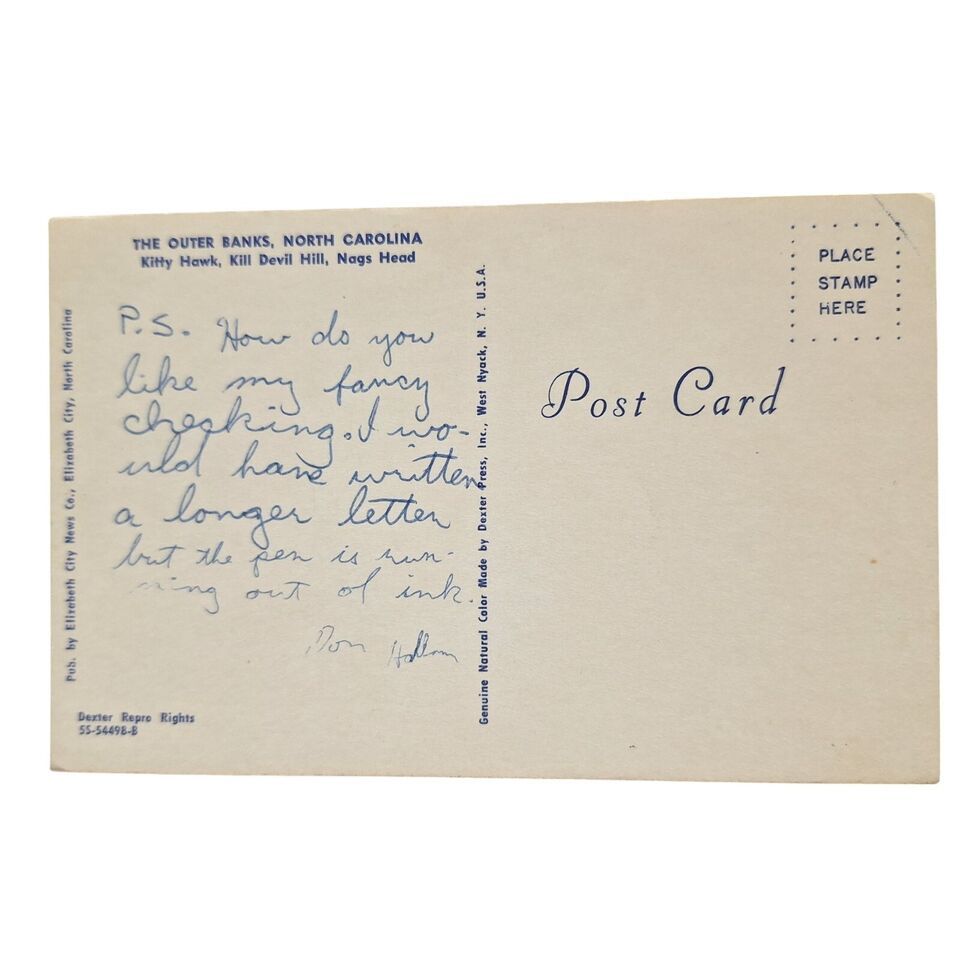 THE OUTER BANKS, NORTH CAROLINA
Kitty Hawk, Kill Devil Hill, Nags Head
P.S. How do you
like my fancy
checking. I wo-
uld have written
a longer letter
but the pen is run-
ning out of ink.
Don
Dexter Repro Rights
55-54498-B
Pub. by Elizabeth City News Co., Elizabeth City, North Carolina
Genuine Natural Color Made by Dexter Press, Inc., West Nyack, N. Y. U.S.A.
PLACE
STAMP
HERE
Post Card